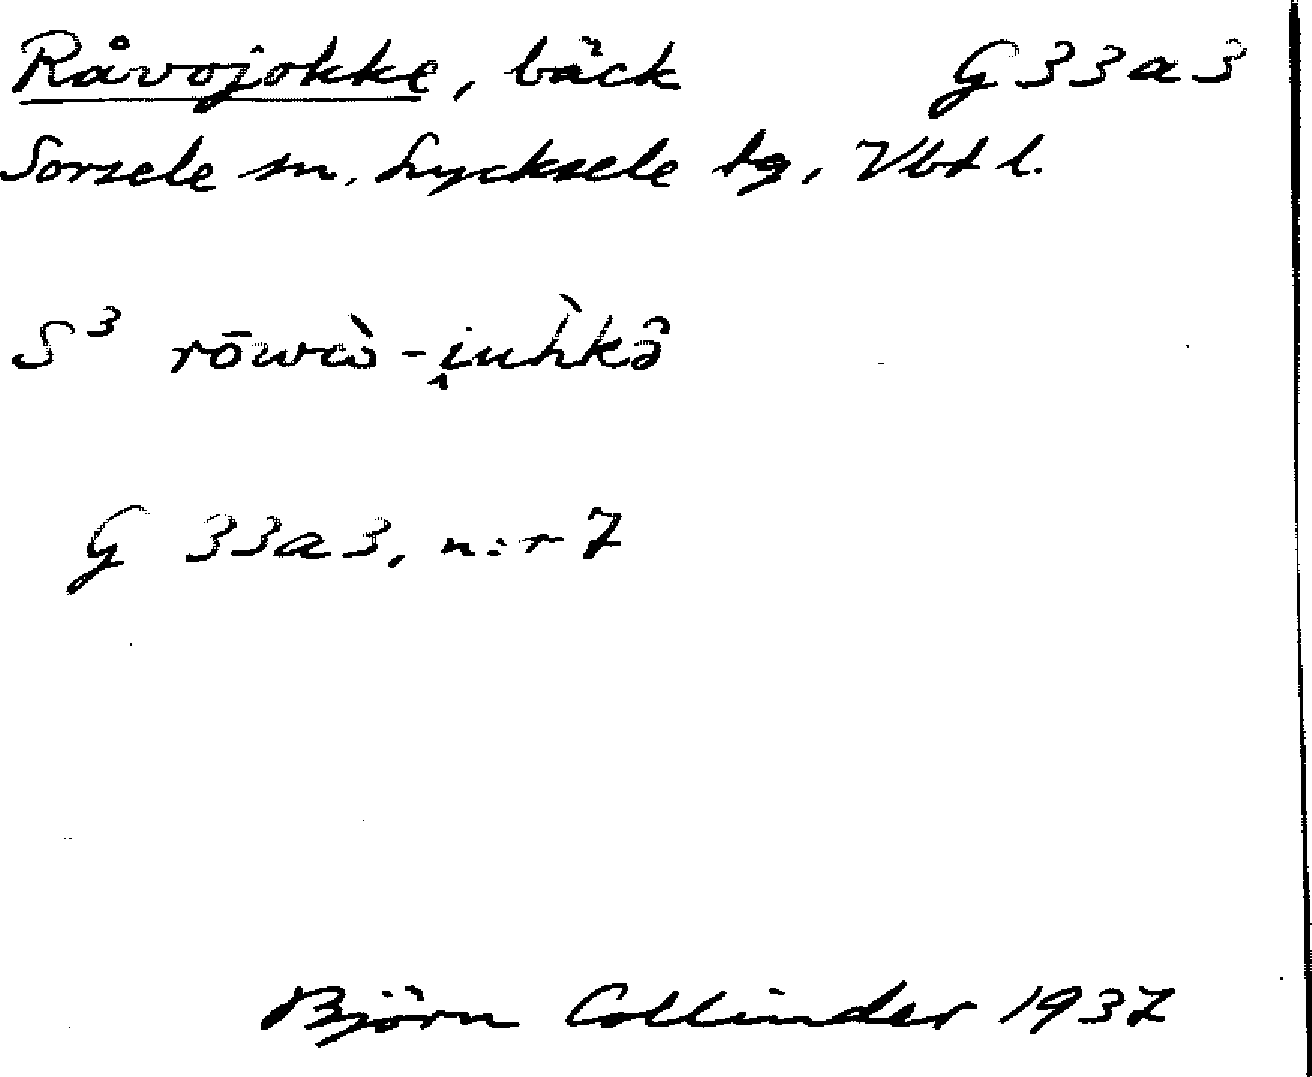 Råvojokke, bäck G 33 a 3
Sorsele sn, Lycksele tg, Vbt l.
S³ rōwὼ-i̭uh̀kə̂
G 33 a 3, n:r 7
Björn Collinder 1937